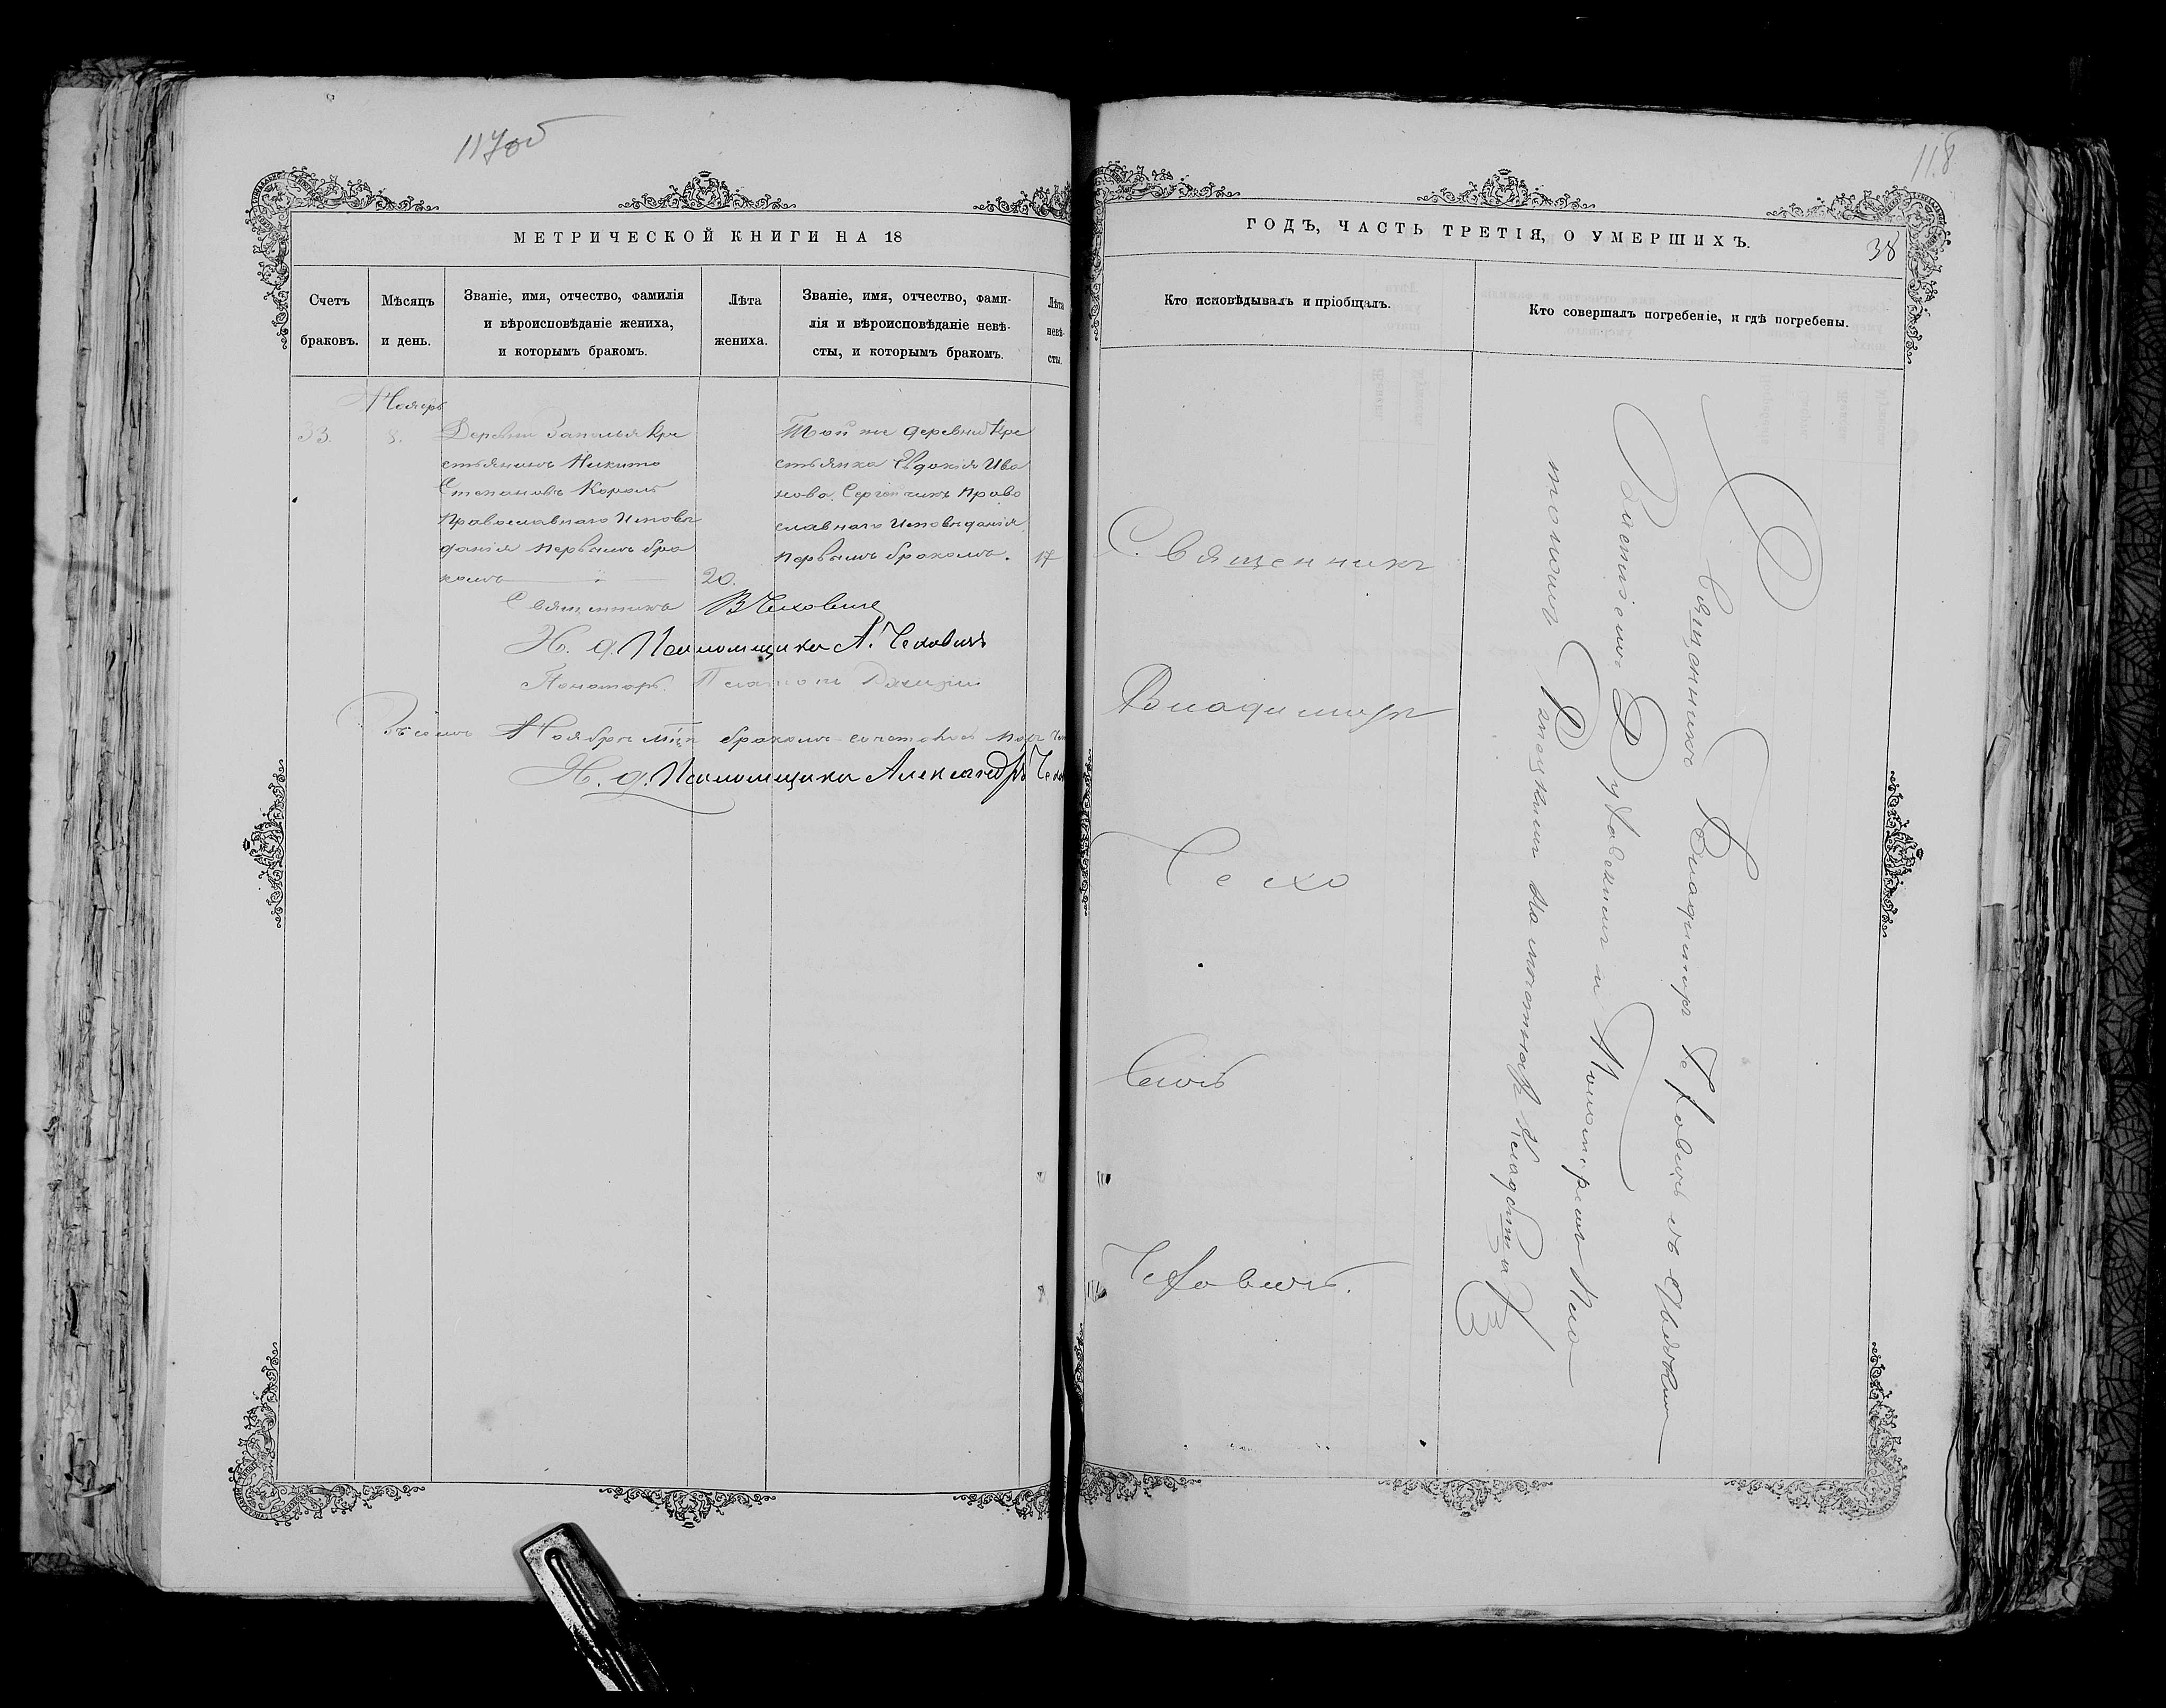 117об
МЕТРИЧЕСКОЙ КНИГИ НА 18
Счетъ браковъ.
Мѣсяцъ и день.
Званіе, имя, отчество, фамилія и вѣроисповѣданіе жениха, и которымъ бракомъ.
Лѣта жениха.
Званіе, имя, отчество, фами-
лія и вѣроисповѣданіе невѣ-
сты, и которымъ бракомъ.
Лѣта невѣ-
сты
Ноябрь
33.
8.
Деревни Заполья Кре
стьянинъ Никита
Степановъ Король
Православнаго Исповѣ
данія первымъ бра
комъ
20.
Той же деревни Кре
стьянка Евдокія Ива
нова Сергейчикъ Право
славнаго Исповѣданія
первымъ бракомъ.
17
Священникъ В Чеховичъ
И. д. Псаломщика А. Чеховичъ
Пономарь
Ноябрѣ мцѣ бракомъ
И. д. Псаломщика Александръ
118
ГОДЪ, ЧАСТЬ ТРЕТІЯ, О УМЕРШИХЪ.
38
Кто исповѣдывалъ и пріобщалъ.
Кто совершалъ погребеніе, и гдѣ погребены.
Священникъ
Владимиръ
Чехо
Чеховичъ.
Священникъ Владимиръ Чеховичъ съ
и Пономаремъ Пла
тономъ на